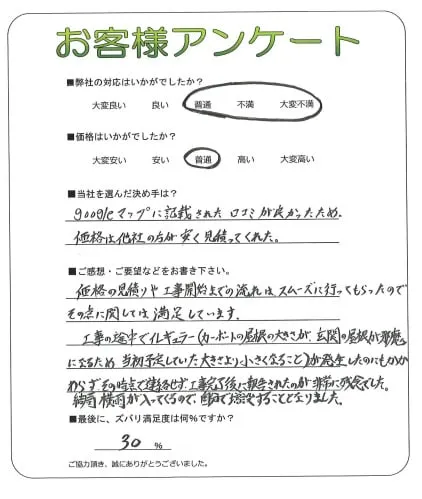 お客様アンケート
■弊社の対応はいかがでしたか?
大変良い 良い 普通 不満 大変不満
■価格はいかがでしたか?
大変安い 安い 普通 高い 大変高い
■当社を選んだ決め手は?
googleマップに記載された口コミが良かったため.
価格は他社の方が安く見積ってくれた。
■ご感想・ご要望などをお書き下さい。
価格の見積りや工事開始までの流れは、スムーズに行ってもらったので
その点に関しては満足しています。
工事の途中でイレギュラー(カーポートの屋根の大きさが、玄関の屋根が邪魔
になるため当初予定していた大きさより小さくなること)が発生したのにもかか
わらずその時点で連絡せず工事完了後に報告されたのが非常に残念でした。
結局横雨が入ってくるので、することとなりました。
■最後に、ズバリ満足度は何%ですか?
30 %
ご協力頂き、誠にありがとうございました。